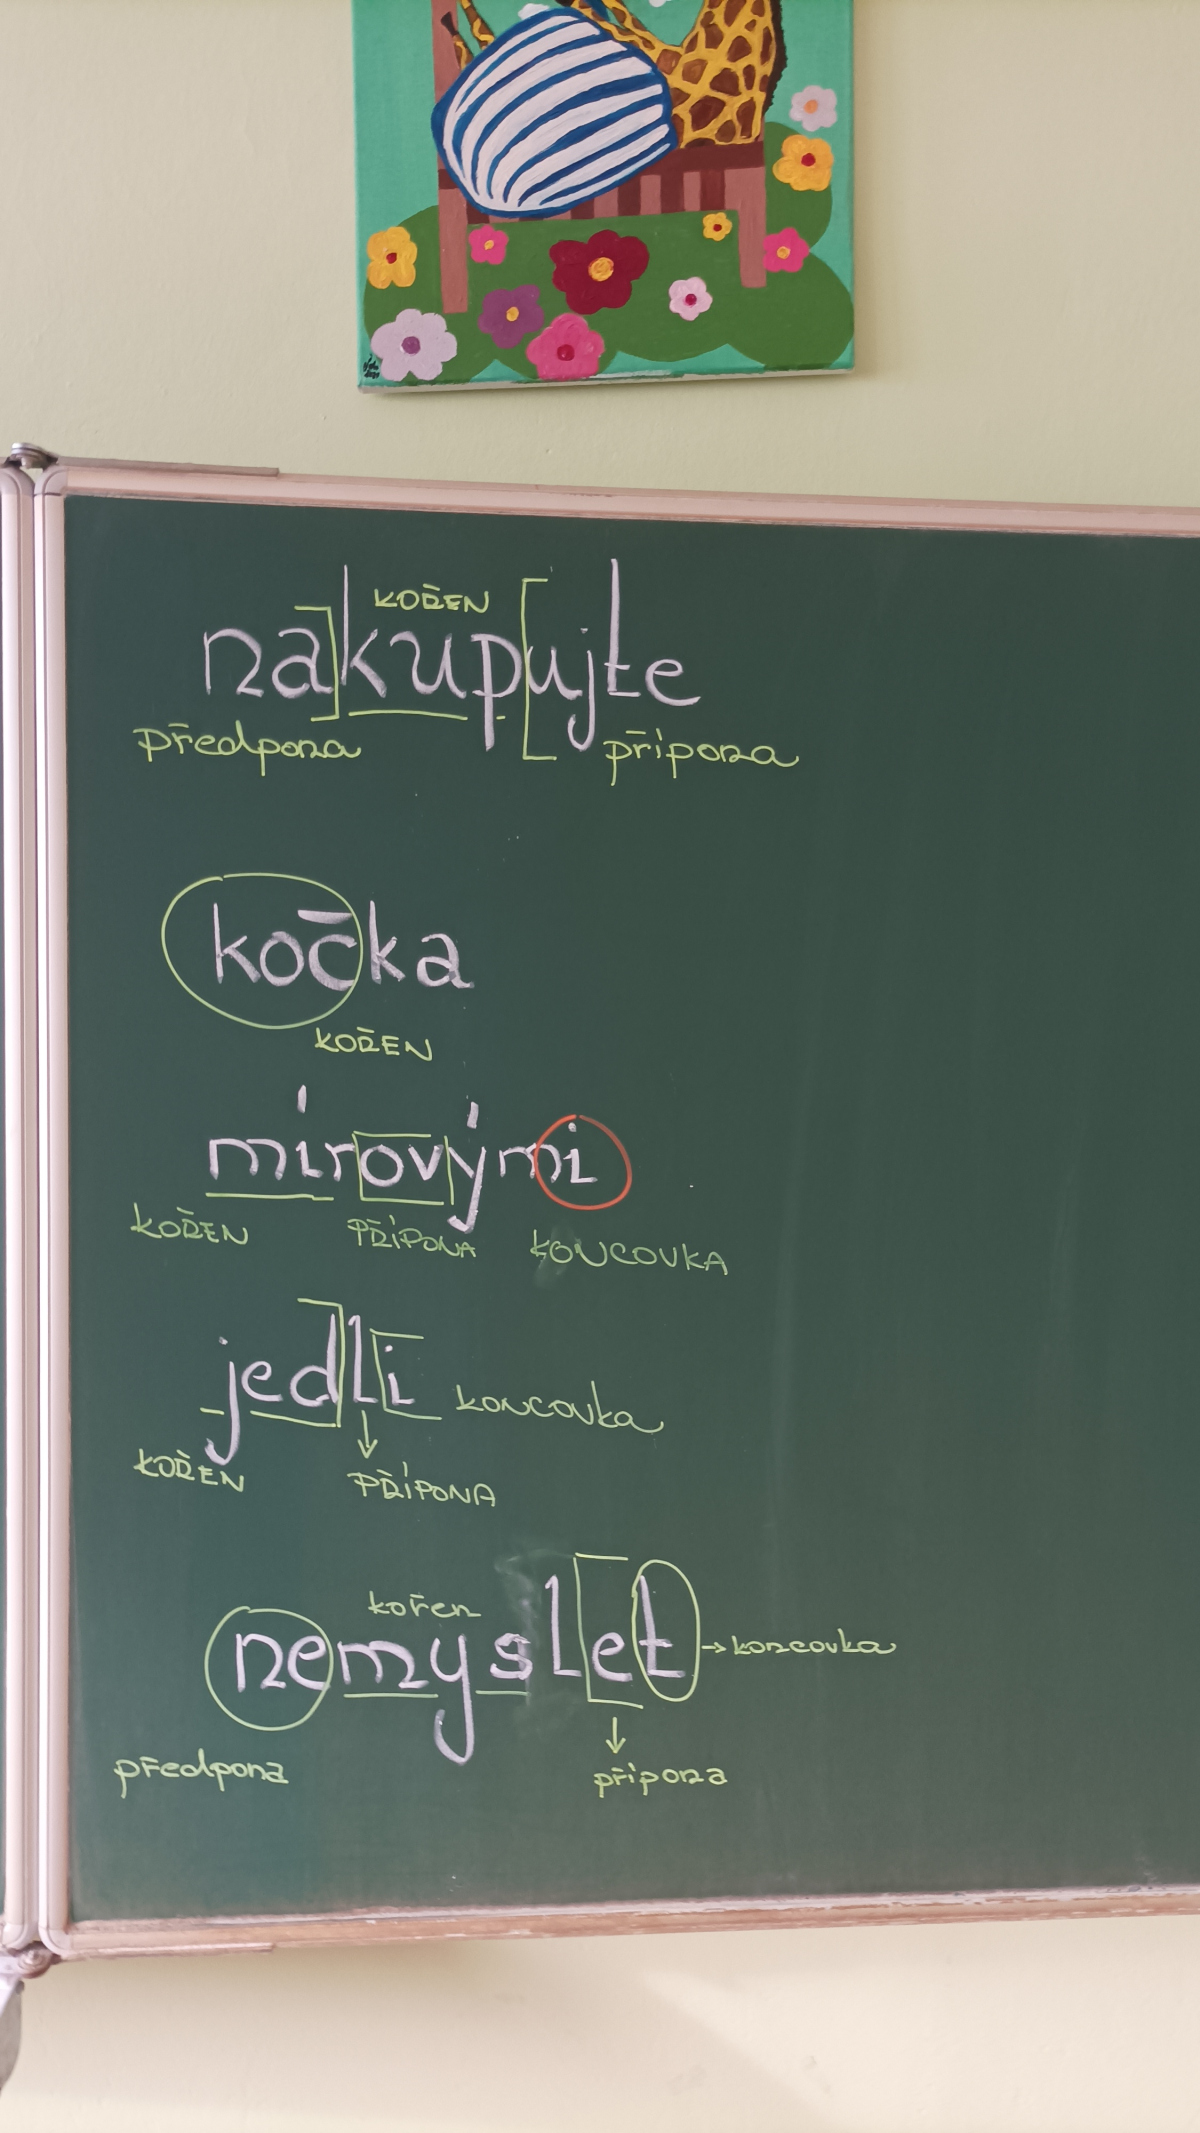 KOŘEN
nakupujte
předpona přípona
kočka
KOŘEN
mírovými
KOŘEN PŘÍPONA KONCOVKA
jedli koncovka
KOŘEN PŘÍPONA
kořen
nemyslet → koncovka
předpona přípona